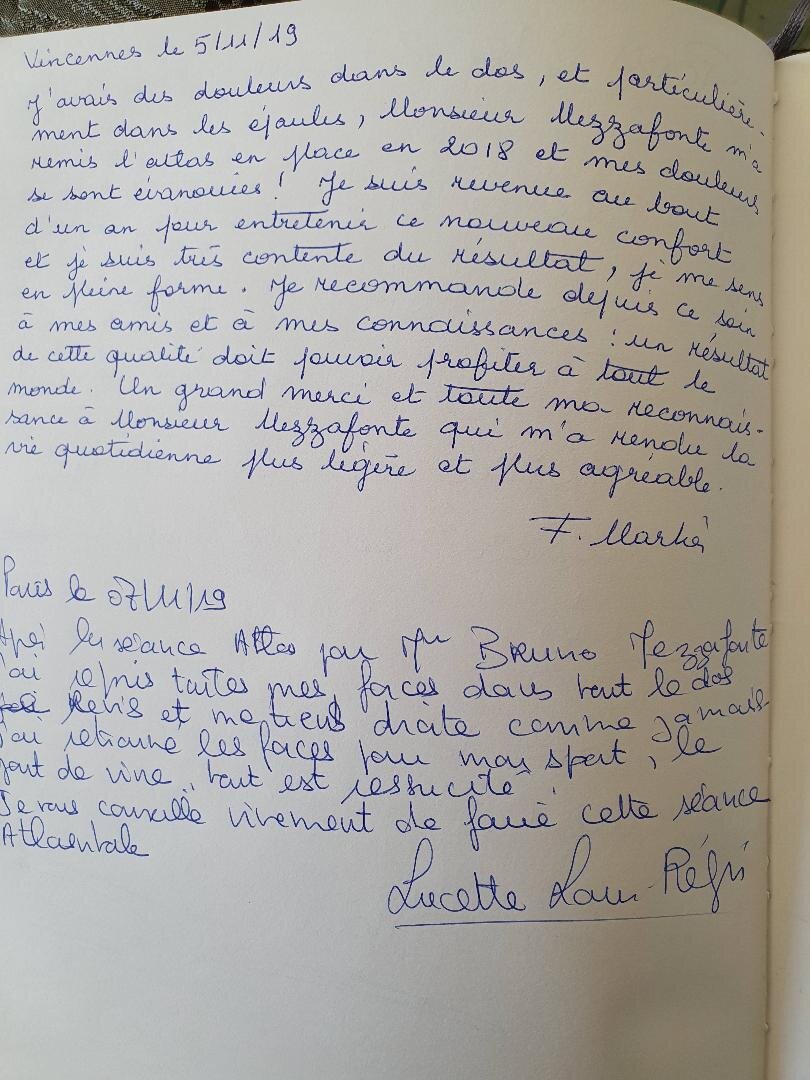 Vincennes le 5/11/19
J'avais des douleurs dans le dos, et particulière-
ment dans les épaules, Monsieur Mezzafonte m'a
remis l'atlas en place en 2018 et mes douleurs
se sont évanouies ! Je suis revenue au bout
d'un an pour entretenir ce nouveau confort
et je suis très contente du résultat, je me sens
en pleine forme. Je recommande depuis ce soin
à mes amis et à mes connaissances : un résultat
de cette qualité doit pouvoir profiter à tout le
monde. Un grand merci et toute ma reconnais-
sance à Monsieur Mezzafonte qui m'a rendu la
vie quotidienne plus légère et plus agréable.
F.
Paris le 07/11/19
la séance Atlas par Mr Bruno Mezzafonte
j'ai repris toutes mes forces dans tout le dos
Revis et me tiens droite comme jamais
j'ai retrouvé les forces pour mon sport, le
gout de vivre, tout est ressucité !
Je vous conseille vivement de faire cette séance
Lucette